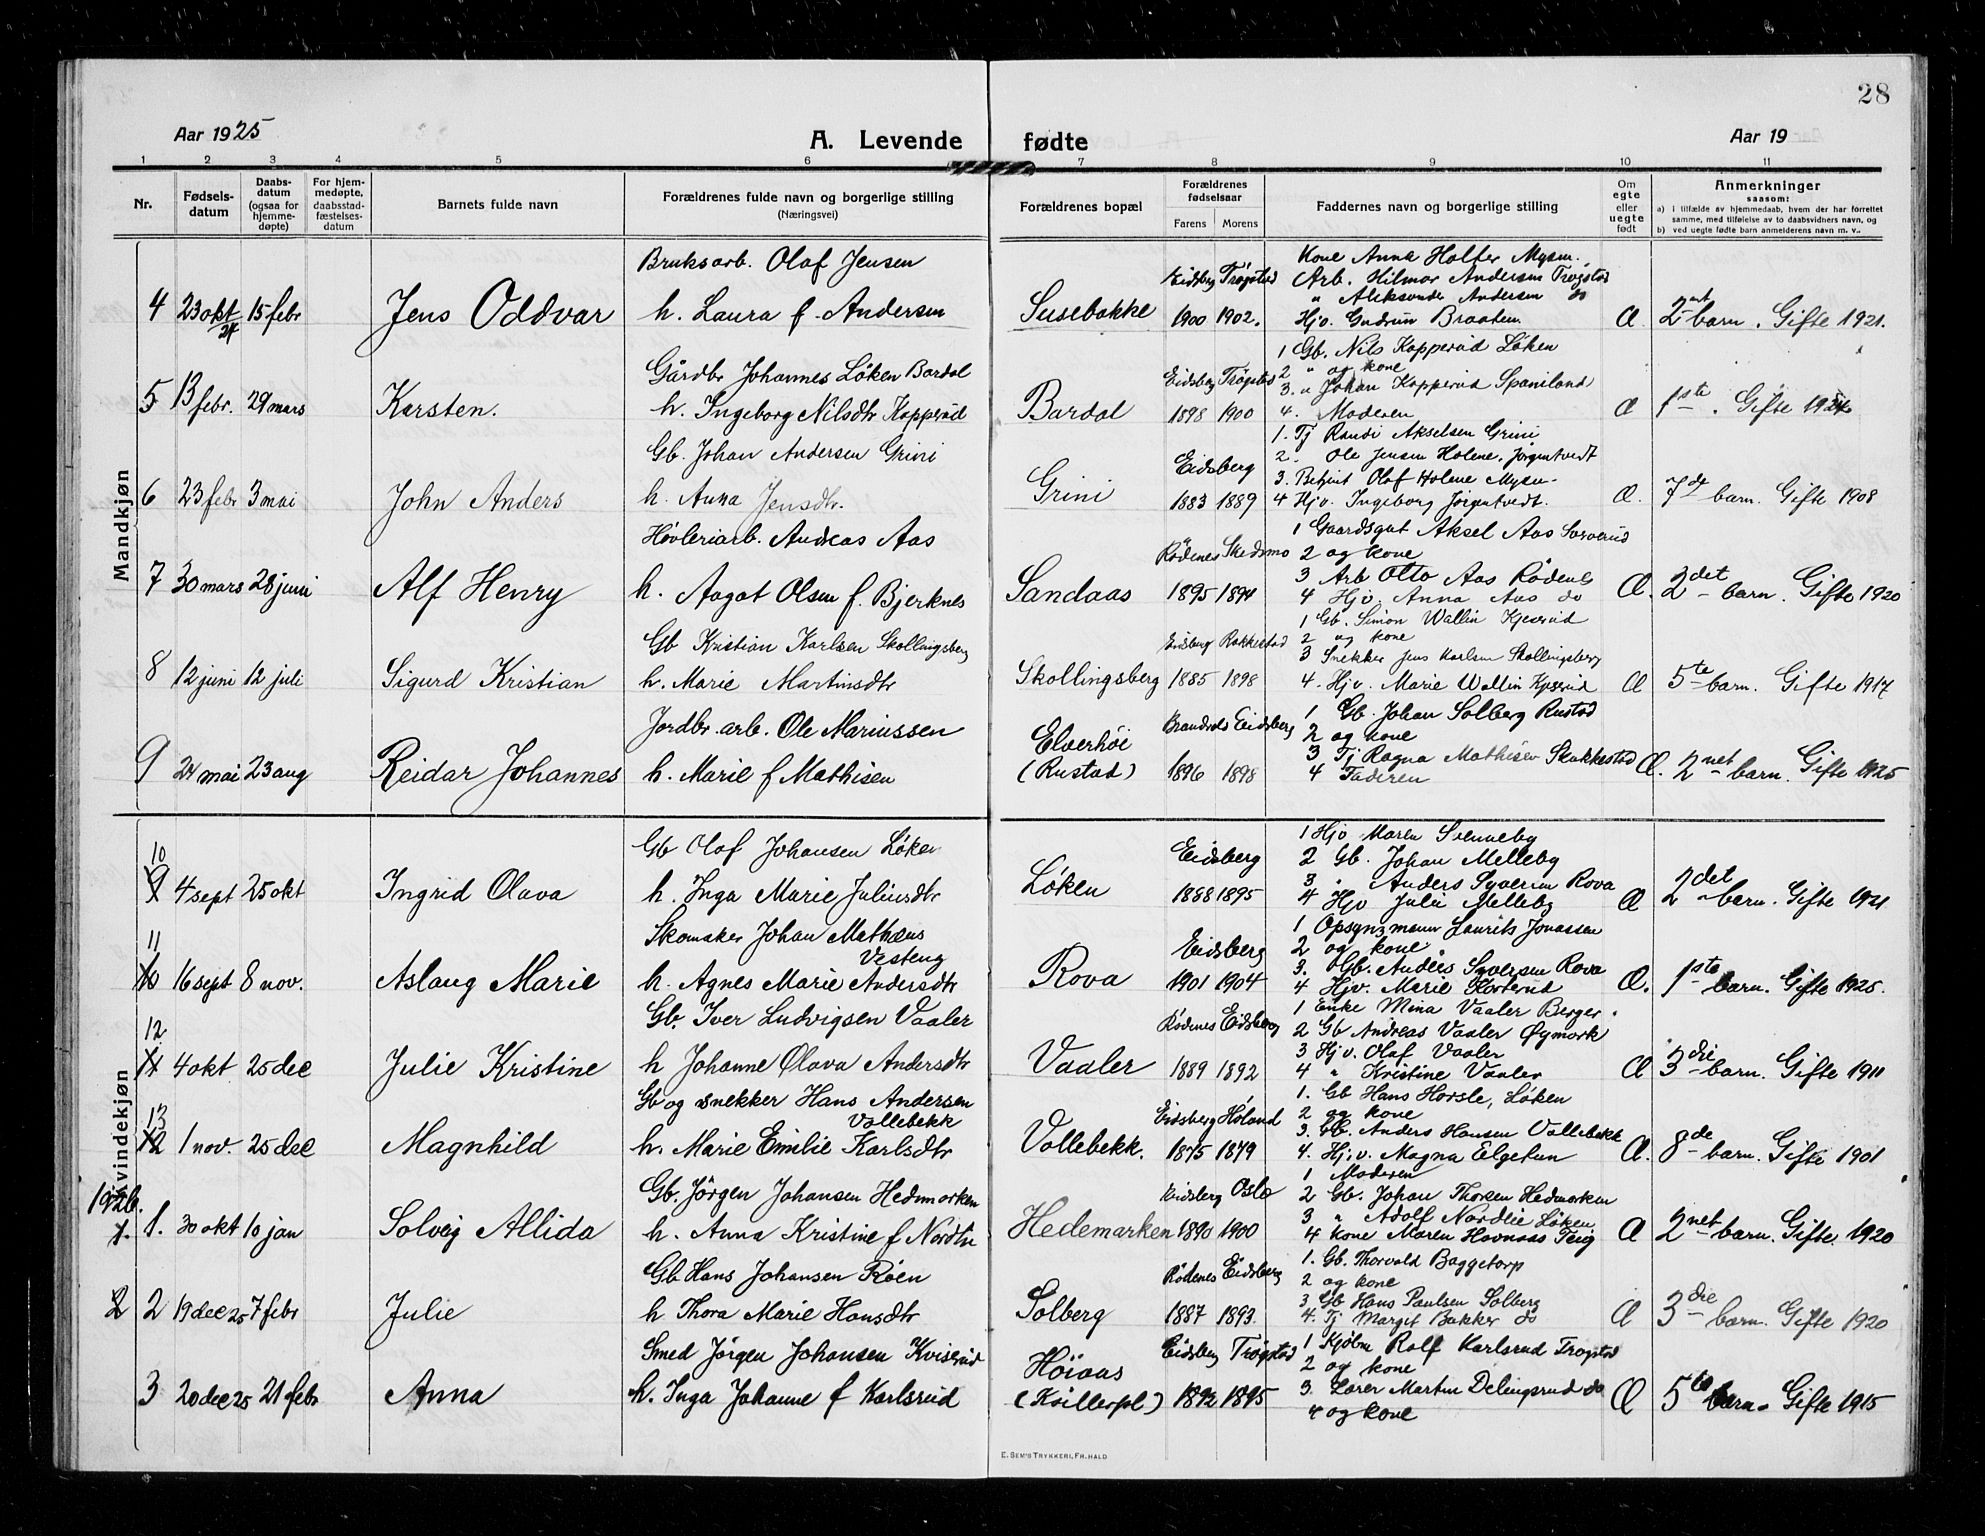 28
Aar 1925
A. Levende
fødte
Aar 19
1 2 3 4 5 6 7 8 9 10 11
Nr.
Fødsels-
datum
Daabs-
datum
(ogsaa for
hjemme-
døpte)
For hjem-
medøpte,
daabsstad-
fæstelses-
datum
Barnets fulde navn
Forældrenes fulde navn og borgerlige stilling
(Næringsvei)
Forældrenes bopæl
Forældrenes
fødselsaar
Farens Morens
Faddernes navn og borgerlige stilling
Om
egte
eller
uegte
født
Anmerkninger
saasom:
a) i tilfælde av hjemmedaab, hvem der har forrettet
samme, med tilføielse av to daabsvidners navn, og
b) ved uegte fødte barn anmelderens navn m. v..
Mandkjøn
Bruksarb. Olaf Jensen
Eidsberg Trøgstad
Kone Anna Holter Mysen.
Arb. Hilmar Andersen Trøgstad
" Aleksander Andersen do
4 23 okt/24 15 febr Jens Oddvar h. Laura f. Andersen Susebakke 1900 1902. Hjv. Gudrun Braaten. Æ 2net barn. Gifte 1921.
Gårdbr Johannes Løken Bardal
Eidsberg Trøgstad
1 Gb. Nils Kopperud Løken
2 " og kone
3. " Johan Kopperud Spaniland
5 13 febr. 29 mars Karsten. h. Ingeborg Nilsdtr Kopperud Bardal 1898 1900 4. Moderen Æ 1ste. Gifte 1924
Gb. Johan Andersen Grini
Eidsberg
1. Tj Randi Akselsen Grini
2. Ole Jensen Holene, Jørgentvedt
3. Betjent Olaf Holene Mysen.
6 23 febr 3 mai John Anders h. Anna Jensdtr. Grini 1883 1889 4 Hjv. Ingeborg Jørgentvedt. Æ. 7de barn. Gifte 1908
Høvleriarb. Andreas Aas
Rødenes Skedsmo
1 Gaardsgut Aksel Aas Sorverud
2 og kone
3 Arb Otto Aas Rødenes
7 30 mars 28 juni Alf Henry h. Aagot Olsen f. Bjerknes Sandaas 1895 1894 4 Hjv. Anna Aas do Æ. 2det barn. Gifte 1920
Gb Kristian Karlsen Skollingsberg
Eidsberg Rakkestad
1 Gb. Simon Wallin Kjeserud
2 og kone
3 Snekker Jens Karlsen Skollingsberg
8 12 juni 12 juli Sigurd Kristian h. Marie Martinsdtr Skollingsberg 1885 1898 4. Hjv. Marie Wallin Kjeserud Æ 5te barn. Gifte 1917
Jordbr. arb. Ole Mariussen
Elverhöi
Eidsberg
1 Gb. Johan Solberg Rustad
2 og kone
3 Tj Ragna Mathisen Skakkestad
9 24 mai 23 aug Reidar Johannes h. Marie f Mathisen (Rustad) 1896 1898 4 Faderen Æ. 2net barn. Gifte 1925
Kvindekjøn
Gb Olaf Johansen Løken
Eidsberg
1 Hjv Maren Svenneby
2 Gb. Johan Melleby
3 " Anders Syversen Rova
10 9 4 sept 25 okt Ingrid Olava h. Inga Marie Juliusdtr Løken 1888 1895 4 Hjv Julie Melleby Æ 2det barn. Gifte 1921.
Skomaker Johan Mathæus
Vesteng
Eidsberg
1 Opsynsmann Laurits Jonassen
2 og kone.
3. Gb. Anders Syversen Rova
11 10 16 sept 8 nov. Aslaug Marie h. Agnes Marie Andersdtr Rova 1901 1904 4 Hjv. Marie Korterud Æ. 1ste barn. Gifte 1925.
Gb. Iver Ludvigsen Vaaler
Rødenes Eidsberg
1 Enke Mina Vaaler Berger.
2 Gb Andreas Vaaler Øymork
3 Hjv. Olaf Vaaler
12 11 4 okt 25 dec Julie Kristine h Johanne Olava Andersdtr Vaaler 1889 1892 4 " Kristine Vaaler Æ 3die barn. Gifte 1911
Gb og snekker Hans Andersen
Vollebekk
Eidsberg Høland
1. Gb Hans Horsle, Løken
2 og kone
3. Gb. Anders Hansen Vollebekk
13 12 1 nov. 25 dec Magnhild h. Marie Emilie Karlsdtr Vollebekk. 1875 1879 4. Hjv. Magna Elgetun Æ. 8de barn. Gifte 1901
1926.
Gb. Jørgen Johansen Hedmarken
Eidsberg Oslo
1 Moderen
2 Gb. Johan Thorsen Hedmarken
3 " Adolf Nordlie Løken
1. 1. 30 okt 10 jan Solveig Allida h. Anna Kristine f Nordlie Hedemarken 1890 1900 4 Kone Maren Hovnaas Teig Æ 2net barn. Gifte. 1920
Gb Hans Johansen Röen
Rødenes Eidsberg
1. Gb. Thorvald Baggetorp
2 og kone
3 Gb Hans Paulsen Solberg
2 2 19 dec 25 7 febr Julie h Thora Marie Hansdtr Solberg 1887 1893. 4. Tj Margit Bakker do Æ 3die barn. Gifte 1920
Smed Jörgen Johansen Kviserud
Höiaas
Eidsberg Trøgstad
1 Kjøbm Rolf Karlsrud Trøgstad
2 og kone
3. Lærer Martin Delingsrud do
3 20 dec 25 21 febr Anna h. Inga Johanne f Karlsrud (Ksillerpl) 1892 1895 4 og kone Æ 5te barn. Gifte 1915
E. SEM'S TRYKKERI, FR.HALD